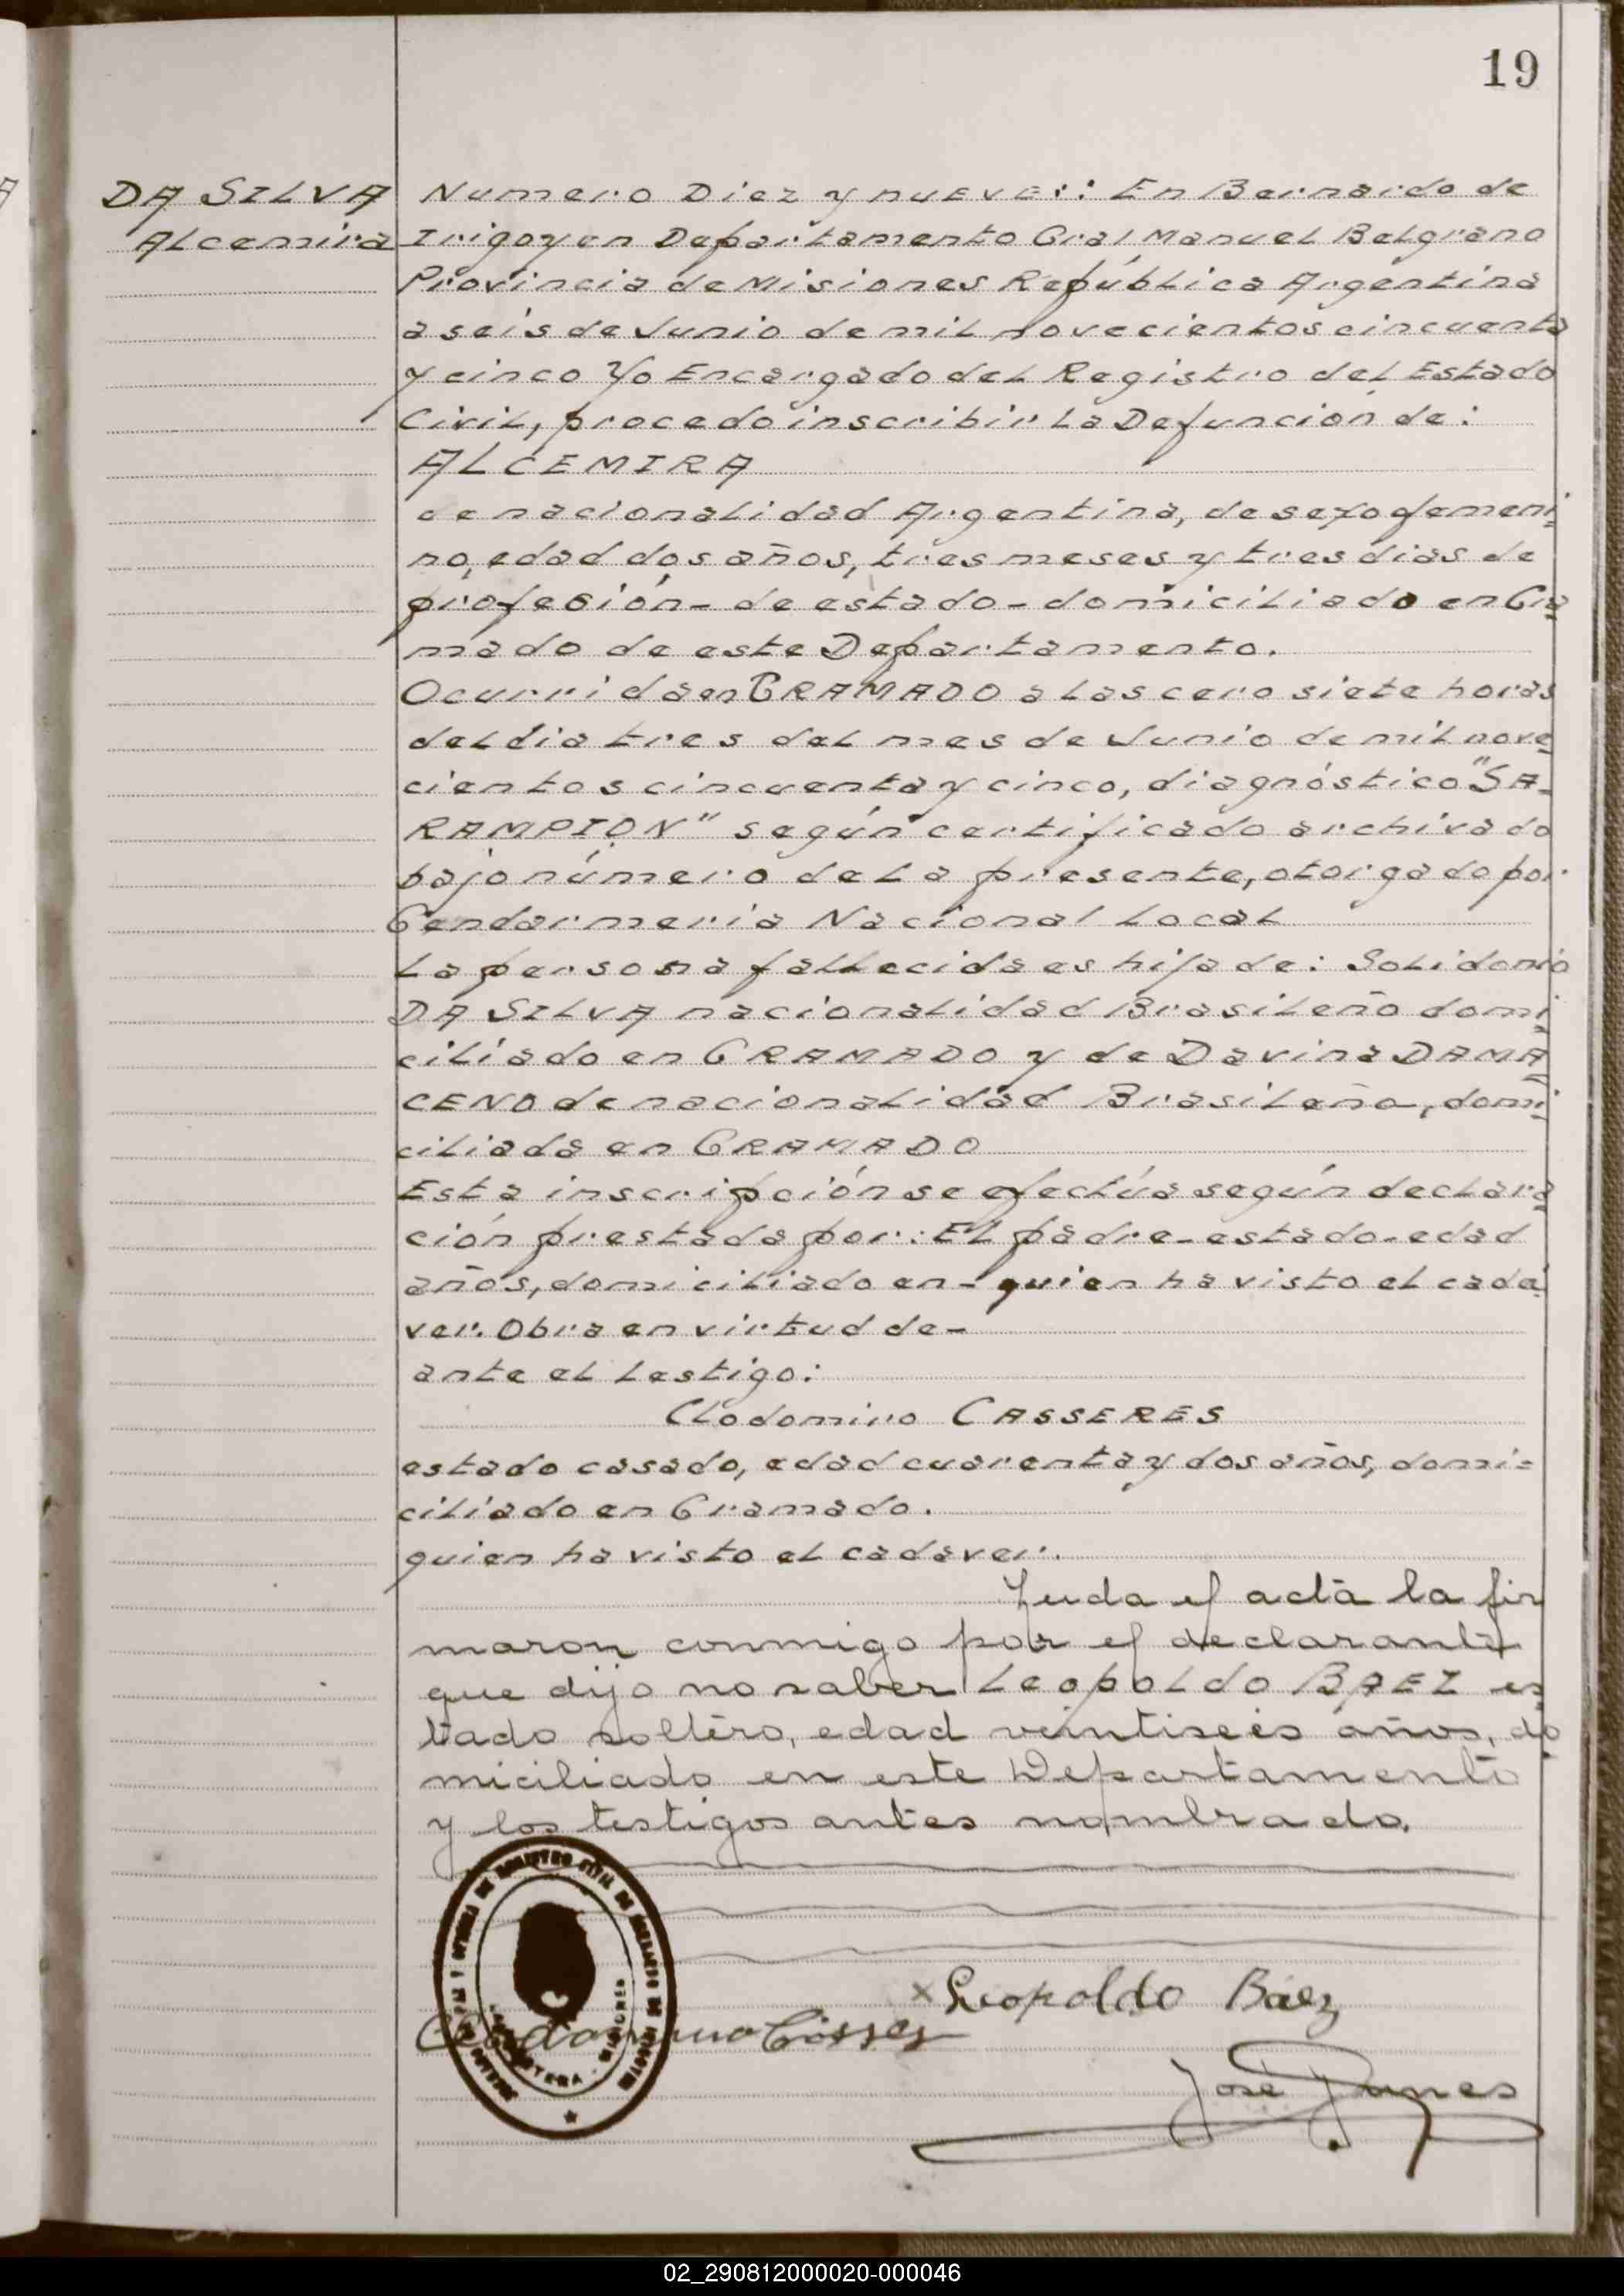 19
DA SILVA
Alcemira
Numero Diez y nueve: En Bernardo de
Irigoyen Departamento Gral Manuel Belgrano
Provincia de Misiones República Argentina
a seis de Junio de mil novecientos cincuenta
y cinco Yo Encargado del Registro del Estado
Civil, procedo inscribir la Defunción de:
ALCEMIRA
de nacionalidad Argentina, de sexo femeni
no, edad dos años, tres meses y tres dias de
profesión - de estado - domiciliado en Gra
mado de este Departamento.
Ocurrida en GRAMADO a las cero siete horas
del dia tres del mes de Junio de mil nove
cientos cincuenta y cinco, diagnóstico "SA-
RAMPION" según certificado archivado
bajo número de la presente, otorgado por
Gendarmeria Nacional Local
La persona fallecida es hija de: Solidonio
DA SILVA nacionalidad Brasileño domi
ciliado en GRAMADO y de Davina DAMA
CENO de nacionalidad Brasileña, domi
ciliada en GRAMADO
Esta inscripción se efectúa según declara
ción prestada por: El padre - estado - edad
años, domiciliado en - quien ha visto el cadá
ver. Obra en virtud de -
ante el testigo:
Clodomiro CASSERES
estado casado, edad cuarenta y dos años, domi=
ciliado en Gramado.
quien ha visto el cadaver.
Leida el acta la fir
maron conmigo por el declarante
que dijo no saber Leopoldo BAEZ es
tado soltero, edad veintiseis años, do
miciliado en este Departamento
y los testigos antes nombrado.
x Leopoldo Báez
MISIONES
José
02_290812000020-000046